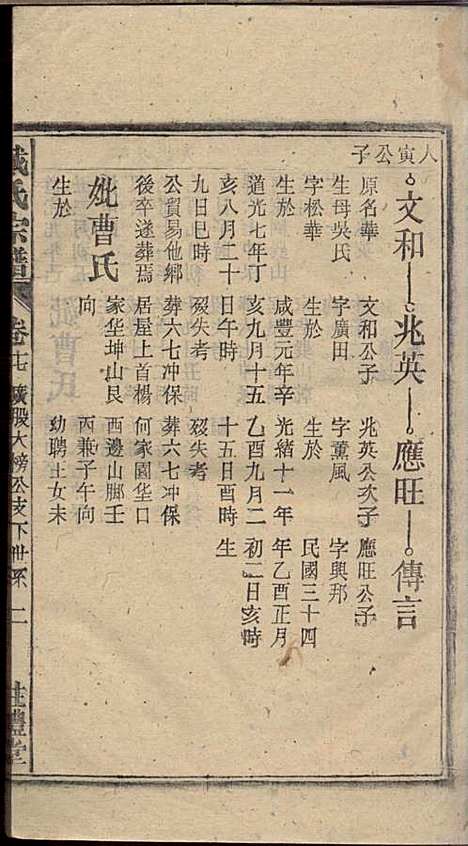 人寅公子
文和 兆英 應旺 傳言
原名華
生母吳氏
字松華
生於
道光七年丁
亥八月二十
九日巳時
公貿易他鄉
後卒遂葬焉
妣曹氏
生於
文和公子
字廣田
生於
咸豐元年辛
亥九月十五
日午時
歿失考
葬六七冲保
居屋上首楊
家垄坤山艮
向
兆英公次子
字薰風
生於
光緒十一年
乙酉九月二
十五日酉時
歿失考
葬六七冲保
何家園垄口
西邊山脚壬
丙兼子午向
幼聘王女未
應旺公子
字興邦
民國三十四
年乙酉正月
初二日亥時
生
戴氏宗譜 卷十七 廣股大榜公支下世系 二 註禮堂